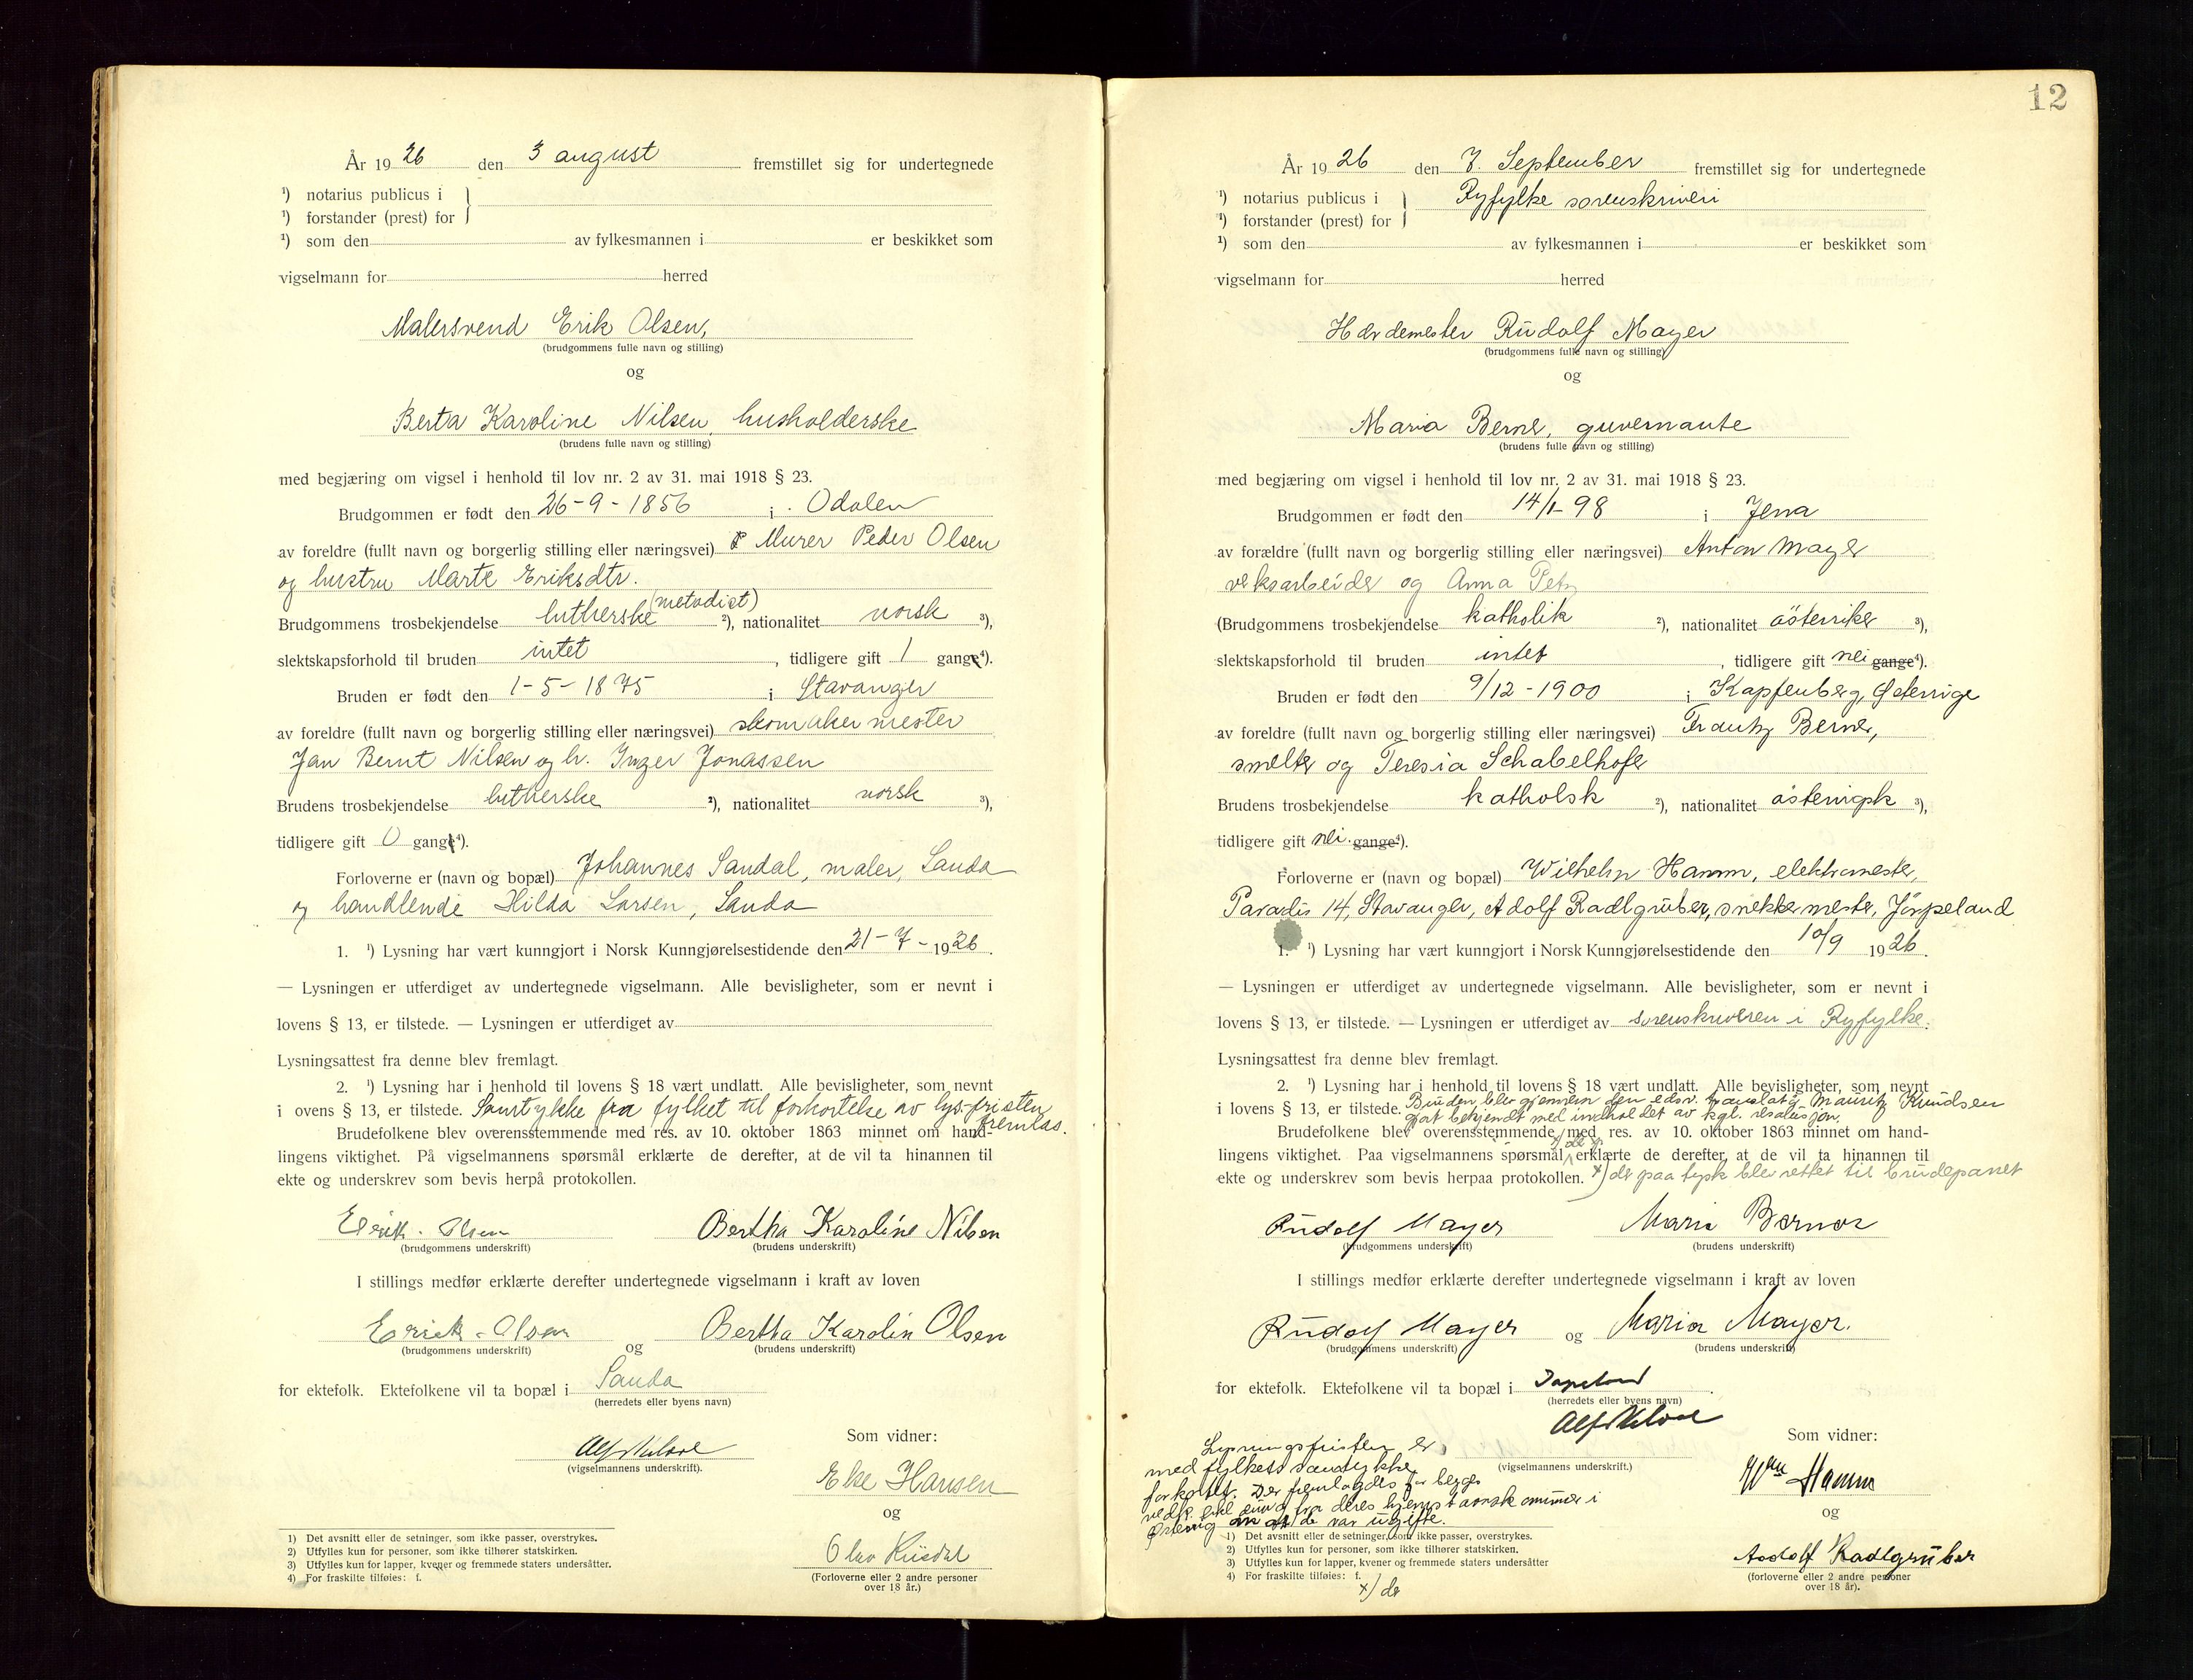 År 1926 den 3 august fremstillet sig for undertegnede
¹) notarius publicus i }
¹) forstander (prest) for
¹) som den av fylkesmannen i er beskikket som
vigselmann for herred
Malersvend Erik Olsen,
(brudgommens fulle navn og stilling)
og
Berta Karoline Nilsen, husholderske
(brudens fulle navn og stilling)
med begjæring om vigsel i henhold til lov nr. 2 av 31. mai 1918 § 23.
Brudgommen er født den 26-9-1856 i Odalen
av foreldre (fullt navn og borgerlig stilling eller næringsvei) Murer Peder Olsen
og hustru Marte Eriksdtr.
(metodist)
Brudgommens trosbekjendelse lutherske ²), nationalitet norsk ³),
slektskapsforhold til bruden intet, tidligere gift 1 gange⁴).
Bruden er født den 1-5-1875 i Stavanger
av foreldre (fullt navn og borgerlig stilling eller næringsvei) skomakermester
Jan Bernt Nilsen og h. Inger Jonassen
Brudens trosbekjendelse lutherske ²), nationalitet norsk ³),
tidligere gift 0 gange⁴).
Forloverne er (navn og bopæl) Johannes Sandal, maler, Sauda
og handlende Hilda Larsen, Sauda
1. ¹) Lysning har vært kunngjort i Norsk Kunngjørelsestidende den 21-7-1926.
— Lysningen er utferdiget av undertegnede vigselmann. Alle bevisligheter, som er nevnt i
lovens § 13, er tilstede. — Lysningen er utferdiget av
Lysningsattest fra denne blev fremlagt.
2. ¹) Lysning har i henhold til lovens § 18 vært undlatt. Alle bevisligheter, som nevnt
i ovens § 13, er tilstede. Samtykke fra fylket til forkortelse av lys.fristen
fremlas.
Brudefolkene blev overensstemmende med res. av 10. oktober 1863 minnet om hand-
lingens viktighet. På vigselmannens spørsmål erklærte de derefter, at de vil ta hinannen til
ekte og underskrev som bevis herpå protokollen.
Erik Olsen Bertha Karoline Nilsen
(brudgommens underskrift) (brudens underskrift)
I stillings medfør erklærte derefter undertegnede vigselmann i kraft av loven
Erick Olsen og Bertha Karolin Olsen
(brudgommens underskrift) (brudens underskrift)
for ektefolk. Ektefolkene vil ta bopæl i Sauda
(herredets eller byens navn)
Som vidner:
(vigselmannens underskrift).
Hansen
og
Olav
(Forloverne eller 2 andre personer
over 18 år.)
1) Det avsnitt eller de setninger, som ikke passer, overstrykes.
2) Utfylles kun for personer, som ikke tilhører statskirken.
3) Utfylles kun for lapper, kvener og fremmede staters undersåtter.
4) For fraskilte tilføies: f.
12
År 1926 den 7. September fremstillet sig for undertegnede
¹) notarius publicus i } Ryfylke sorenskriveri
¹) forstander (prest) for
¹) som den av fylkesmannen i er beskikket som
vigselmann for herred
Hærdemester Rudolf Mayer
(brudgommens fulle navn og stilling)
og
Maria Berner, guvernante
(brudens fulle navn og stilling)
med begjæring om vigsel i henhold til lov nr. 2 av 31. mai 1918 § 23.
Brudgommen er født den 14/1-98 i Jena
av forældre (fullt navn og borgerlig stilling eller næringsvei) Anton Mayer
verksarbeider og Anna Petz
(Brudgommens trosbekjendelse katholik ²), nationalitet østerriker ³),
slektskapsforhold til bruden intet, tidligere gift nei gange⁴).
Bruden er født den 9/12-1900 i Kapfenberg, Østerrige
av foreldre (fullt navn og borgerlig stilling eller næringsvei) Frantz Berner,
smelter og Teresia Schabelhofer
Brudens trosbekjendelse katholsk ²), nationalitet østerrigsk ³),
tidligere gift nei. gange⁴).
Forloverne er (navn og bopæl) Wilhelm Hamm, elektromester,
Paradis 14, Stavanger, Adolf Radlgruber, snekkermester, Jörpeland
1. ¹) Lysning har vært kunngjort i Norsk Kunngjørelsestidende den 10/9 1926.
— Lysningen er utferdiget av undertegnede vigselmann. Alle bevisligheter, som er nevnt i
lovens § 13, er tilstede. — Lysningen er utferdiget av sorenskriveren i Ryfylke.
Lysningsattest fra denne blev fremlagt.
2. ¹) Lysning har i henhold til lovens § 18 vært undlatt. Alle bevisligheter, som nevnt
i lovens § 13, er tilstede. Bruden blev gjennem den edsv. translatør Mauritz Knudsen
gjort bekjendt med indholdet av kgl. resolusjon.
Brudefolkene blev overensstemmende med res. av 10. oktober 1863 minnet om hand-
lingens viktighet. Paa vigselmannens spørsmål erklærte de derefter, at de vil ta hinannen til
ekte og underskrev som bevis herpaa protokollen. x) der paa tysk blev rettet til brudeparret
Rudolf Mayer Maria Berner
(brudgommens underskrift) (brudens underskrift)
I stillings medfør erklærte derefter undertegnede vigselmann i kraft av loven
Rudolf Mayer og Maria Mayer.
(brudgommens underskrift) (brudens underskrift)
for ektefolk. Ektefolkene vil ta bopæl i
(herredets eller byens navn)
Som vidner:
Lysningsfristen er
med fylkets samtykke
forkortet. Der fremlagdes for begge
fra deres hjemstavnskommune i
at de var ugifte.
(vigselmannens underskrift.)
Hamm
og
Adolf Radlgruber
(forloverne eller 2 andre personer
over 18 år).
1) Det avsnitt eller de setninger, som ikke passer, overstrykes.
2) Utfylles kun for personer, som ikke tilhører statskirken.
3) Utfylles kun for lapper, kvener og fremmede staters undersåtter
4) For fraskilte tilføies: f.
x) der